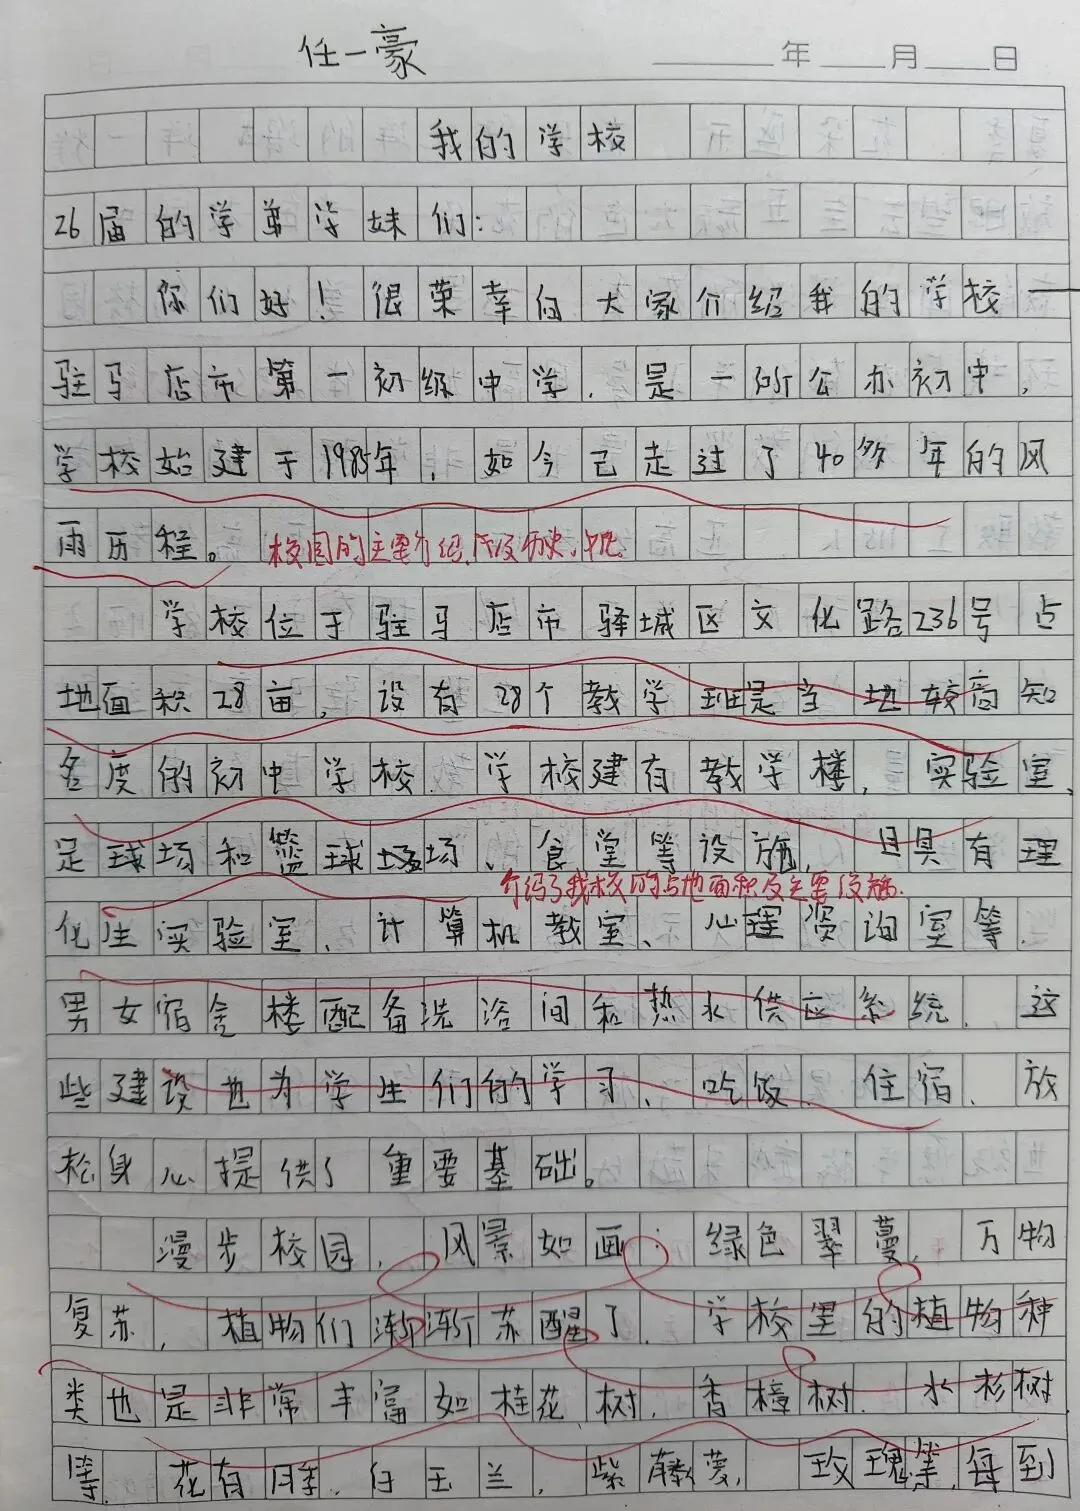 任一豪
年 月 日
我的学校
26届的学弟学妹们:
你们好!很荣幸向大家介绍我的学校一
驻马店市第一初级中学.是一所公办初中,
学校始建于1985年,如今已走过了40多年的风
雨历程。
校园的主要介绍,
学校位于驻马店市驿城区文化路236号占
地面积28亩,设有28个教学班是当地较高知
名度的初中学校.学校建有教学楼,实验室、
足球场和篮球场、食堂等设施,且具有理
介绍了我校的占地面积及主要设施.
化生实验室、计算机教室、心理资询室等.
男女宿舍楼配备洗浴间和热水供应系统.这
些建设也为学生们的学习、吃饭、住宿、放
松身心提供了重要基础。
漫步校园,风景如画:绿色翠蔓,万物
复苏,植物们渐渐苏醒了.学校里的植物种
类也是非常丰富如桂花树.香樟树.水杉树
等.花有月季.白玉兰,紫藤萝,玫瑰等,每到